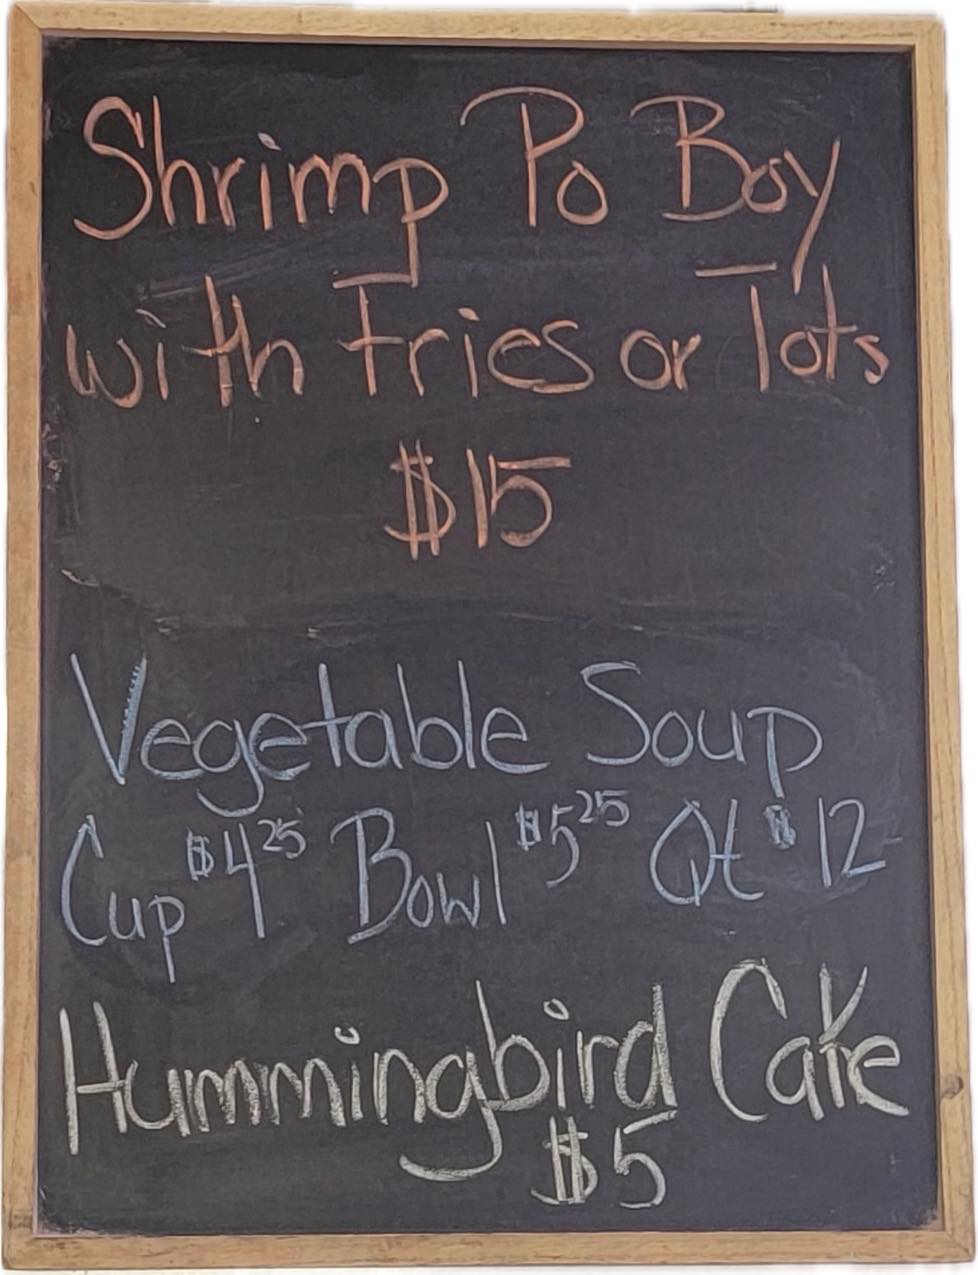 Shrimp Po Boy
with Fries or Tots
$15
Vegetable Soup
Cup $4.25 Bowl $5.25 Qt $12
Hummingbird Cake
$5